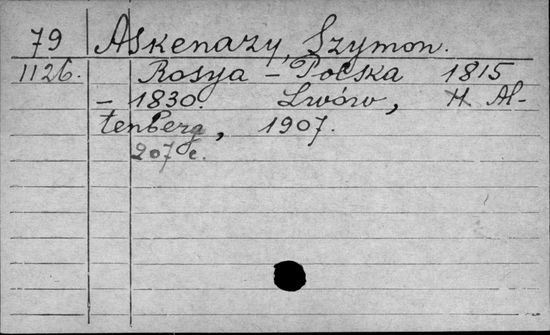 79 Askenazy, Szymon.
1126. Rosya – Polska 1815
– 1830. Lwów, H. Al-
tenberg, 1907.
207 c.